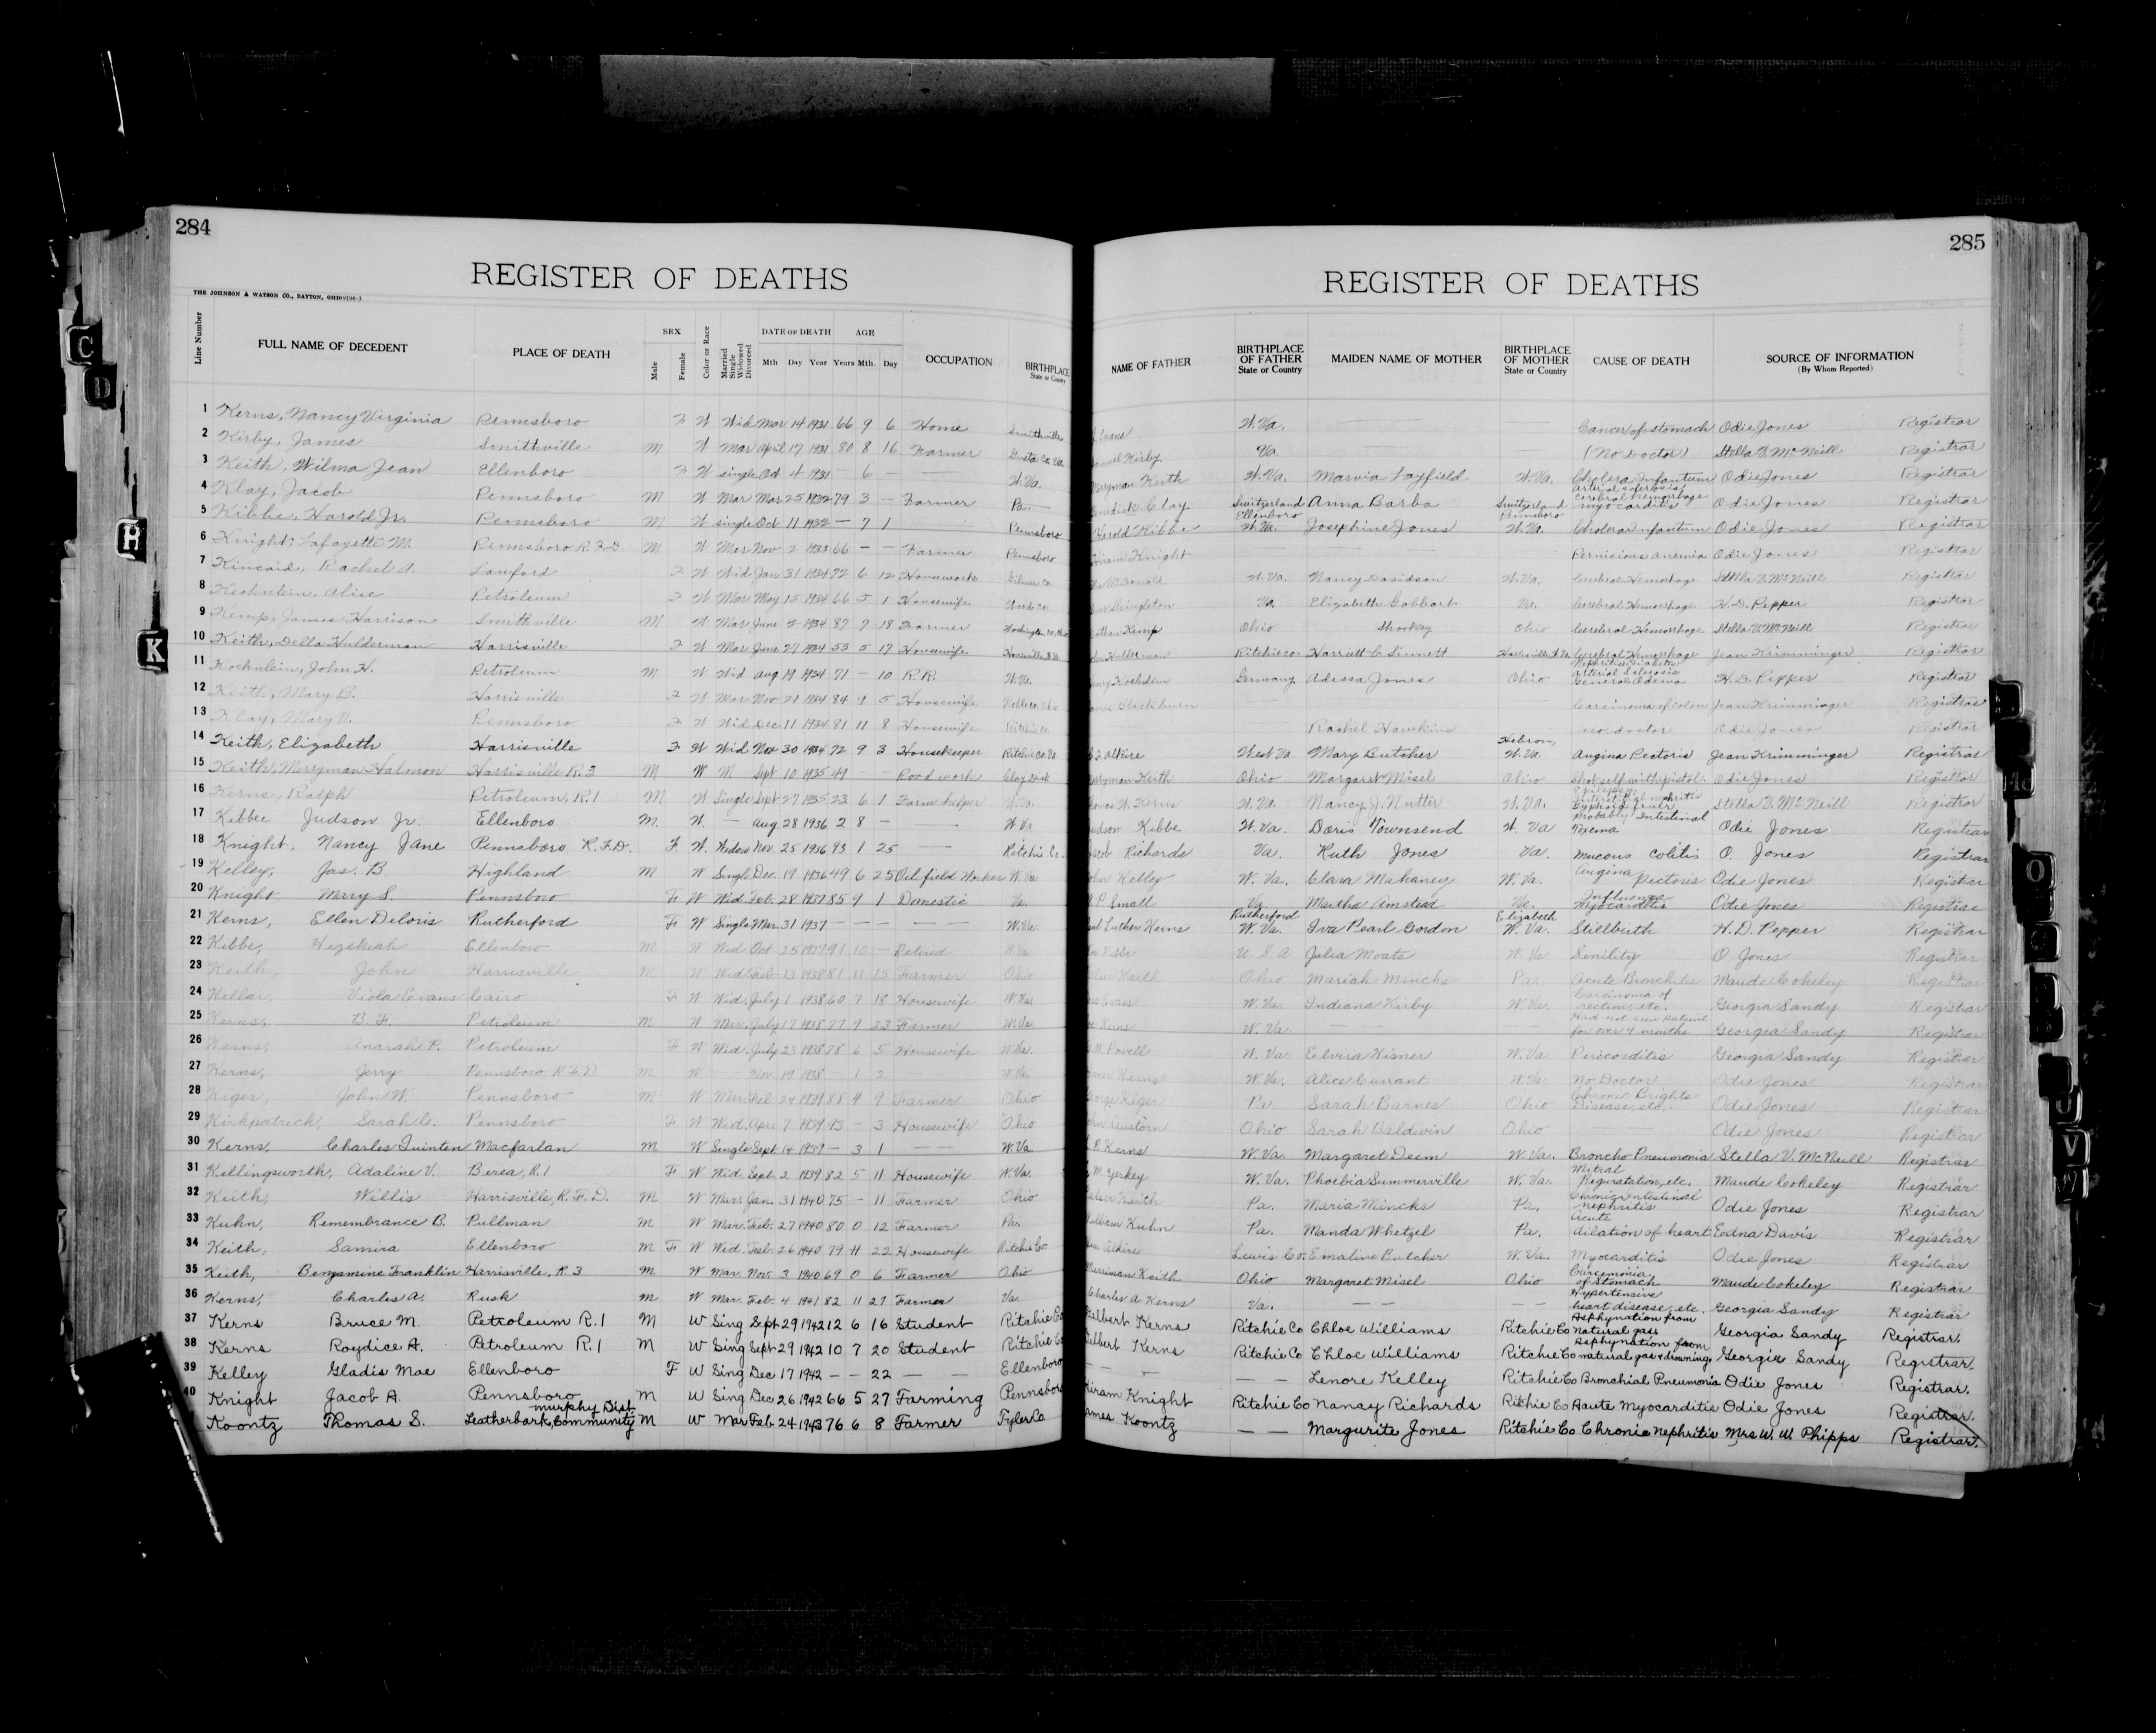 284
REGISTER OF DEATHS
THE JOHNSON & WATSON CO., DAYTON, OHIO
Line Number FULL NAME OF DECEDENT PLACE OF DEATH SEX Male Female Color or Race Married Single Widowed Divorced DATE OF DEATH Mth Day Year AGE Years Mth. Day OCCUPATION BIRTHPLACE State or Country
285
REGISTER OF DEATHS
NAME OF FATHER BIRTHPLACE OF FATHER State or Country MAIDEN NAME OF MOTHER BIRTHPLACE OF MOTHER State or Country CAUSE OF DEATH SOURCE OF INFORMATION (By Whom Reported)
1 Kerns, Nancy Virginia Pennsboro F W Wid Mar 14 1931 66 9 6 Home Smithville W.Va. Cancer of stomach Odie Jones Registrar
2 Kirby, James Smithville M W Mar April 17 1931 80 8 16 Farmer Kirby Va. (No Doctor) Stella V. McNeill Registrar
3 Keith, Wilma Jean Ellenboro F W single Oct 4 1931 — 6 — W.Va. Merryman Keith W.Va. Marvia Layfield W.Va. Cholera Infantum Odie Jones Registrar
4 Klay, Jacob Pennsboro M W Mar Mar 25 1932 79 3 — Farmer Pa. Clay Switzerland Anna Barba Switzerland arterial sclerosis, cerebral hemorrhage myocarditis Odie Jones Registrar
5 Kibbe, Harold Jr. Pennsboro M W single Oct 11 1932 — 7 1 Pennsboro Harold Kibbe Ellenboro W.Va. Josephine Jones Pennsboro W.Va. Cholera infantum Odie Jones Registrar
6 Knight, Lafayette M. Pennsboro R.F.D. M W Mar Nov 2 1933 66 — — Farmer Pennsboro Hiram Knight Pernicious anemia Odie Jones Registrar
7 Kincaid, Rachel A. Lawford F W Wid Jan 31 1934 72 6 12 Housework Gilmer Co McDonald W.Va. Nancy Davidson W.Va. Cerebral Hemorhage Stella V. McNeill Registrar
8 Koehnlein, Alice Petroleum F W Mar May 15 1934 66 5 1 Housewife Wood Co. Singleton Va. Elizabeth Gabbart Va. Cerebral Hemorhage H.D. Pepper Registrar
9 Kemp, James Harrison Smithville M W Mar June 2 1934 87 7 18 Farmer Kemp Ohio Shookey Ohio Cerebral Hemorrhage Stella V. McNeill Registrar
10 Keith, Della Hulderman Harrisville F W Mar June 27 1934 53 5 17 Housewife Ritchie Co. Harriett C Sinnett Cerebral Hemorrhage Jean Krimminger Registrar
11 Koehnlein, John H. Petroleum M W Wid Aug 19 1934 71 — 10 R.R. W.Va. Germany Adessa Jones Ohio Nephritis Diabetes arterial Sclerosis General Edema H.D. Pepper Registrar
12 Keith, Mary B. Harrisville F W Mar Nov 21 1934 84 9 5 Housewife Blackburn Carcinoma of colon Jean Krimminger Registrar
13 Klay, Mary V. Pennsboro F W Wid Dec 11 1934 81 11 8 Housewife Ritchie Co. Rachel Hawkins no doctor Odie Jones Registrar
14 Keith, Elizabeth Harrisville F W Wid Nov 30 1934 72 9 3 Housekeeper Ritchie Co. Va Alkire West Va. Mary Butcher Hebron, W.Va. Angina Pectoris Jean Krimminger Registrar
15 Keith, Merryman Halmon Harrisville R.3 M W M Sept 10 1935 49 — — Road work Clay Dist Merryman Keith Ohio Margaret Misel Ohio Shot self with pistol. Odie Jones Registrar
16 Kerns, Ralph Petroleum, R.1 M W Single Sept 27 1935 23 6 1 Farm helper W.Va. Kerns W.Va. Nancy J. Nutter W.Va. Stella V. McNeill Registrar
17 Kibbee Judson Jr. Ellenboro M. W. — Aug 28 1936 2 8 — — W Va Judson Kibbe W.Va. Doris Townsend W. Va probably Intestinal Toxema Odie Jones Registrar
18 Knight, Nancy Jane Pennsboro R.F.D. F. W. Widow Nov. 25 1936 93 1 25 — Ritchie Co. Jacob Richards Va. Ruth Jones Va. Mucous Colitis O. Jones Registrar
19 Kelley, Jas. B. Highland M W Single Dec. 19 1936 49 6 25 Oil field Worker W. Va John Kelley W. Va. Clara Mahaney W. Va. Angina Pectoris Odie Jones Registrar
20 Knight, Mary S. Pennsboro F W Wid. Feb. 28 1937 85 9 1 Domestic Va. Small Va. Martha Amstead Va. Influenza Myocarditis Odie Jones Registrar
21 Kerns, Ellen Deloris Rutherford F W Single Mar. 31 1937 — — — — W.Va Luther Kerns Rutherford W. Va. Iva Pearl Gordon Elizabeth W. Va. Stillbirth H. D. Pepper Registrar
22 Kibbe, Hezekiah Ellenboro M W Wed. Oct 25 1937 91 10 — Retired W.Va Kibbe U. S. A Julia Moats W. Va Senility O. Jones Registrar
23 Keith, John Harrisville M W Wid. Feb. 13 1938 81 11 15 Farmer Ohio Keith Ohio Mariah Mincks Pa. Acute Bronchitis Maude Cokeley Registrar
24 Kellar, Viola Evans Cairo F W Wid. July 1 1938 60 7 18 Housewife W.Va. Evans W. Va. Indiana Kirby W. Va. Carcinoma of rectum, etc. Georgia Sandy Registrar
25 Kerns, B. F. Petroleum M W Mar. July 17 1938 77 9 23 Farmer W.Va. Kerns W. Va. — — — Had not seen patient for over 4 months Georgia Sandy Registrar
26 Kerns, Anarah P. Petroleum F W Wid. July 23 1938 78 6 5 Housewife W.Va. Powell W. Va. Elvira Kisner W. Va. Pericorditis Georgia Sandy Registrar
27 Kerns, Jerry Pennsboro R.F.D. M W — Nov. 19 1938 — 1 2 W.Va. Kerns W. Va. Alice Currant W. Va. No Doctor Odie Jones Registrar
28 Kiger, John W. Pennsboro M W Mar. Feb. 24 1939 88 4 9 Farmer Ohio George Kiger Pa Sarah Barnes Ohio Chronic Brights Disease, etc. Odie Jones Registrar
29 Kirkpatrick, Sarah C. Pennsboro F W Wid. Apr. 7 1939 93 — 3 Housewife Ohio John Austorn Ohio Sarah Baldwin Ohio Odie Jones Registrar
30 Kerns, Charles Quinten Macfarlan M W Single Sept. 14 1939 — 3 1 — W.Va Kerns W. Va. Margaret Deem W. Va. Broncho Pneumonia Stella V. McNeill Registrar
31 Killingsworth, Adaline V. Berea, R.1 F W Wid. Sept. 2 1939 82 5 11 Housewife W.Va. M. Yerkey W. Va. Phoebia Summerville W. Va. Mitral Reguratation, etc. Maude Cokeley Registrar
32 Keith, Willis Harrisville, R.F.D. M W Mar. Jan. 31 1940 75 — 11 Farmer Ohio Keith Pa. Maria Mincks Pa. Chronic Intestinal nephritis Odie Jones Registrar
33 Kuhn, Remembrance B. Pullman M W Mar. Feb. 27 1940 80 0 12 Farmer Pa. William Kuhn Pa. Manda Whetzel Pa. Acute dilation of heart Edna Davis Registrar
34 Keith, Samira Ellenboro M F W Wid. Feb. 26 1940 79 11 22 Housewife Ritchie Co. Alkire Lewis Co. Emaline Butcher W. Va. Myocarditis Odie Jones Registrar
35 Keith, Bengamine Franklin Harrisville, R.3 M W Mar. Nov. 3 1940 69 0 6 Farmer Ohio Merriman Keith Ohio Margaret Misel Ohio Carcemonia of Stomach Maude Cokeley Registrar
36 Kerns, Charles A. Rusk M W Mar. Feb. 4 1941 82 11 27 Farmer Va. Charles A Kerns Va. — — — — Hypertensive heart disease, etc. Georgia Sandy Registrar
37 Kerns Bruce M. Petroleum R.1 M W Sing Sept 29 1942 12 6 16 Student Ritchie Co Delbert Kerns Ritchie Co Chloe Williams Ritchie Co Asphynation from natural gas Georgia Sandy Registrar.
38 Kerns Roydice A. Petroleum R.1 M W Sing Sept 29 1942 10 7 20 Student Ritchie Co Delbert Kerns Ritchie Co Chloe Williams Ritchie Co Asphynation from natural gas & drowning Georgia Sandy Registrar.
39 Kelley Gladis Mae Ellenboro F W Sing Dec 17 1942 — — 22 — — Ellenboro — — — — Lenore Kelley Ritchie Co Bronchial Pneumonia Odie Jones Registrar.
40 Knight Jacob A. Pennsboro M W Sing Dec 26 1942 66 5 27 Farming Pennsboro Hiram Knight Ritchie Co Nancy Richards Ritchie Co Acute Myocarditis Odie Jones Registrar.
Koontz Thomas S. Murphy Dist Leatherbark, Community M W Mar Feb 24 1943 76 6 8 Farmer Tyler Co James Koontz — — Margurite Jones Ritchie Co Chronic Nephritis Mrs W. W. Phipps Registrar.
C
D
H
K
O
V